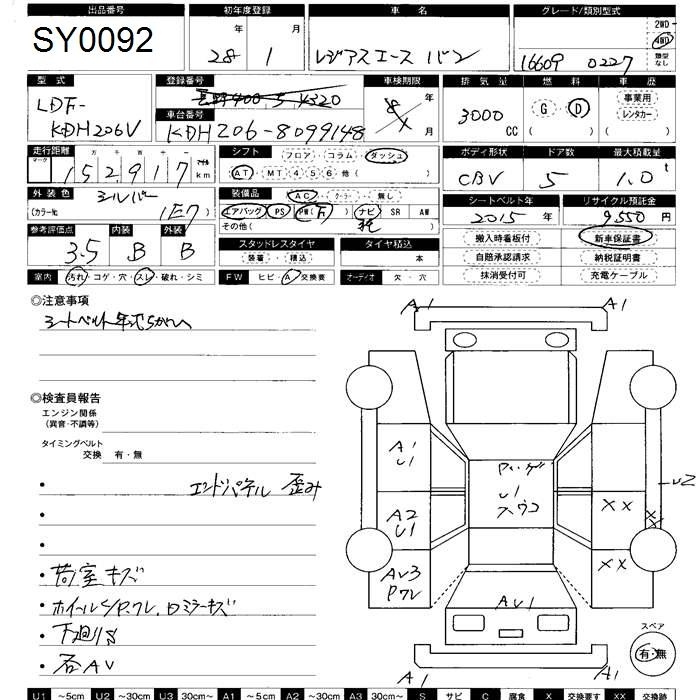 出品番号
SY0092
初年度登録
28 年 1 月
車名
レジアスエース バン
グレード/類別型式
16609 0227
2WD
4WD
類型なし
型式
LDF-
KDH206V
登録番号
長野400 5 4320
車台番号
KDH206-8099148
車検期限
年
月
排気量
3000 CC
燃料
G D
( )
車歴
事業用
レンタカー
( )
走行距離
マーク 万 千 百 十 一 マイル
152,917 km
シフト
フロア・コラム・ダッシュ
AT・MT 4 5 6 他( )
ボディ形状
CBV
ドア数
5
最大積載量
1.0 t
外装色
シルバー
(カラー№ 1E7)
装備品
AC・クーラー・無し
エアバッグ PS PW(F) ナビ SR AW
その他( )
シートベルト年
2015年
リサイクル預託金
9,550円
参考評価点
3.5
内装
B
外装
B
スタッドレスタイヤ
装着・積込
タイヤ積込
本
搬入時看板付
新車保証書
自賠承認請求
納税証明書
抹消受付可
充電ケーブル
室内
汚れ・コゲ・穴・スレ・破れ・シミ
FW
ヒビ・A・交換要
オーディオ
欠・穴
◎注意事項
シートベルト年式ちがい
◎検査員報告
エンジン関係
(異音・不調等)
タイミングベルト
交換 有・無
・エンドパネル 歪み
・
・
・荷室キズ
・ホイールS/P.ワレ,Dミラーキズ
・下廻りS
・各AV
A1
A1
A1
U1
A2
U1
AV3
Pワレ
U1
スウコ
U2
XX
XX
XX
AV1
A1
A1
スペア
有・無
U1 ～5cm U2 ～30cm U3 30cm～ A1 ～5cm A2 ～30cm A3 30cm～ S サビ C 腐食 X 交換要す XX 交換跡